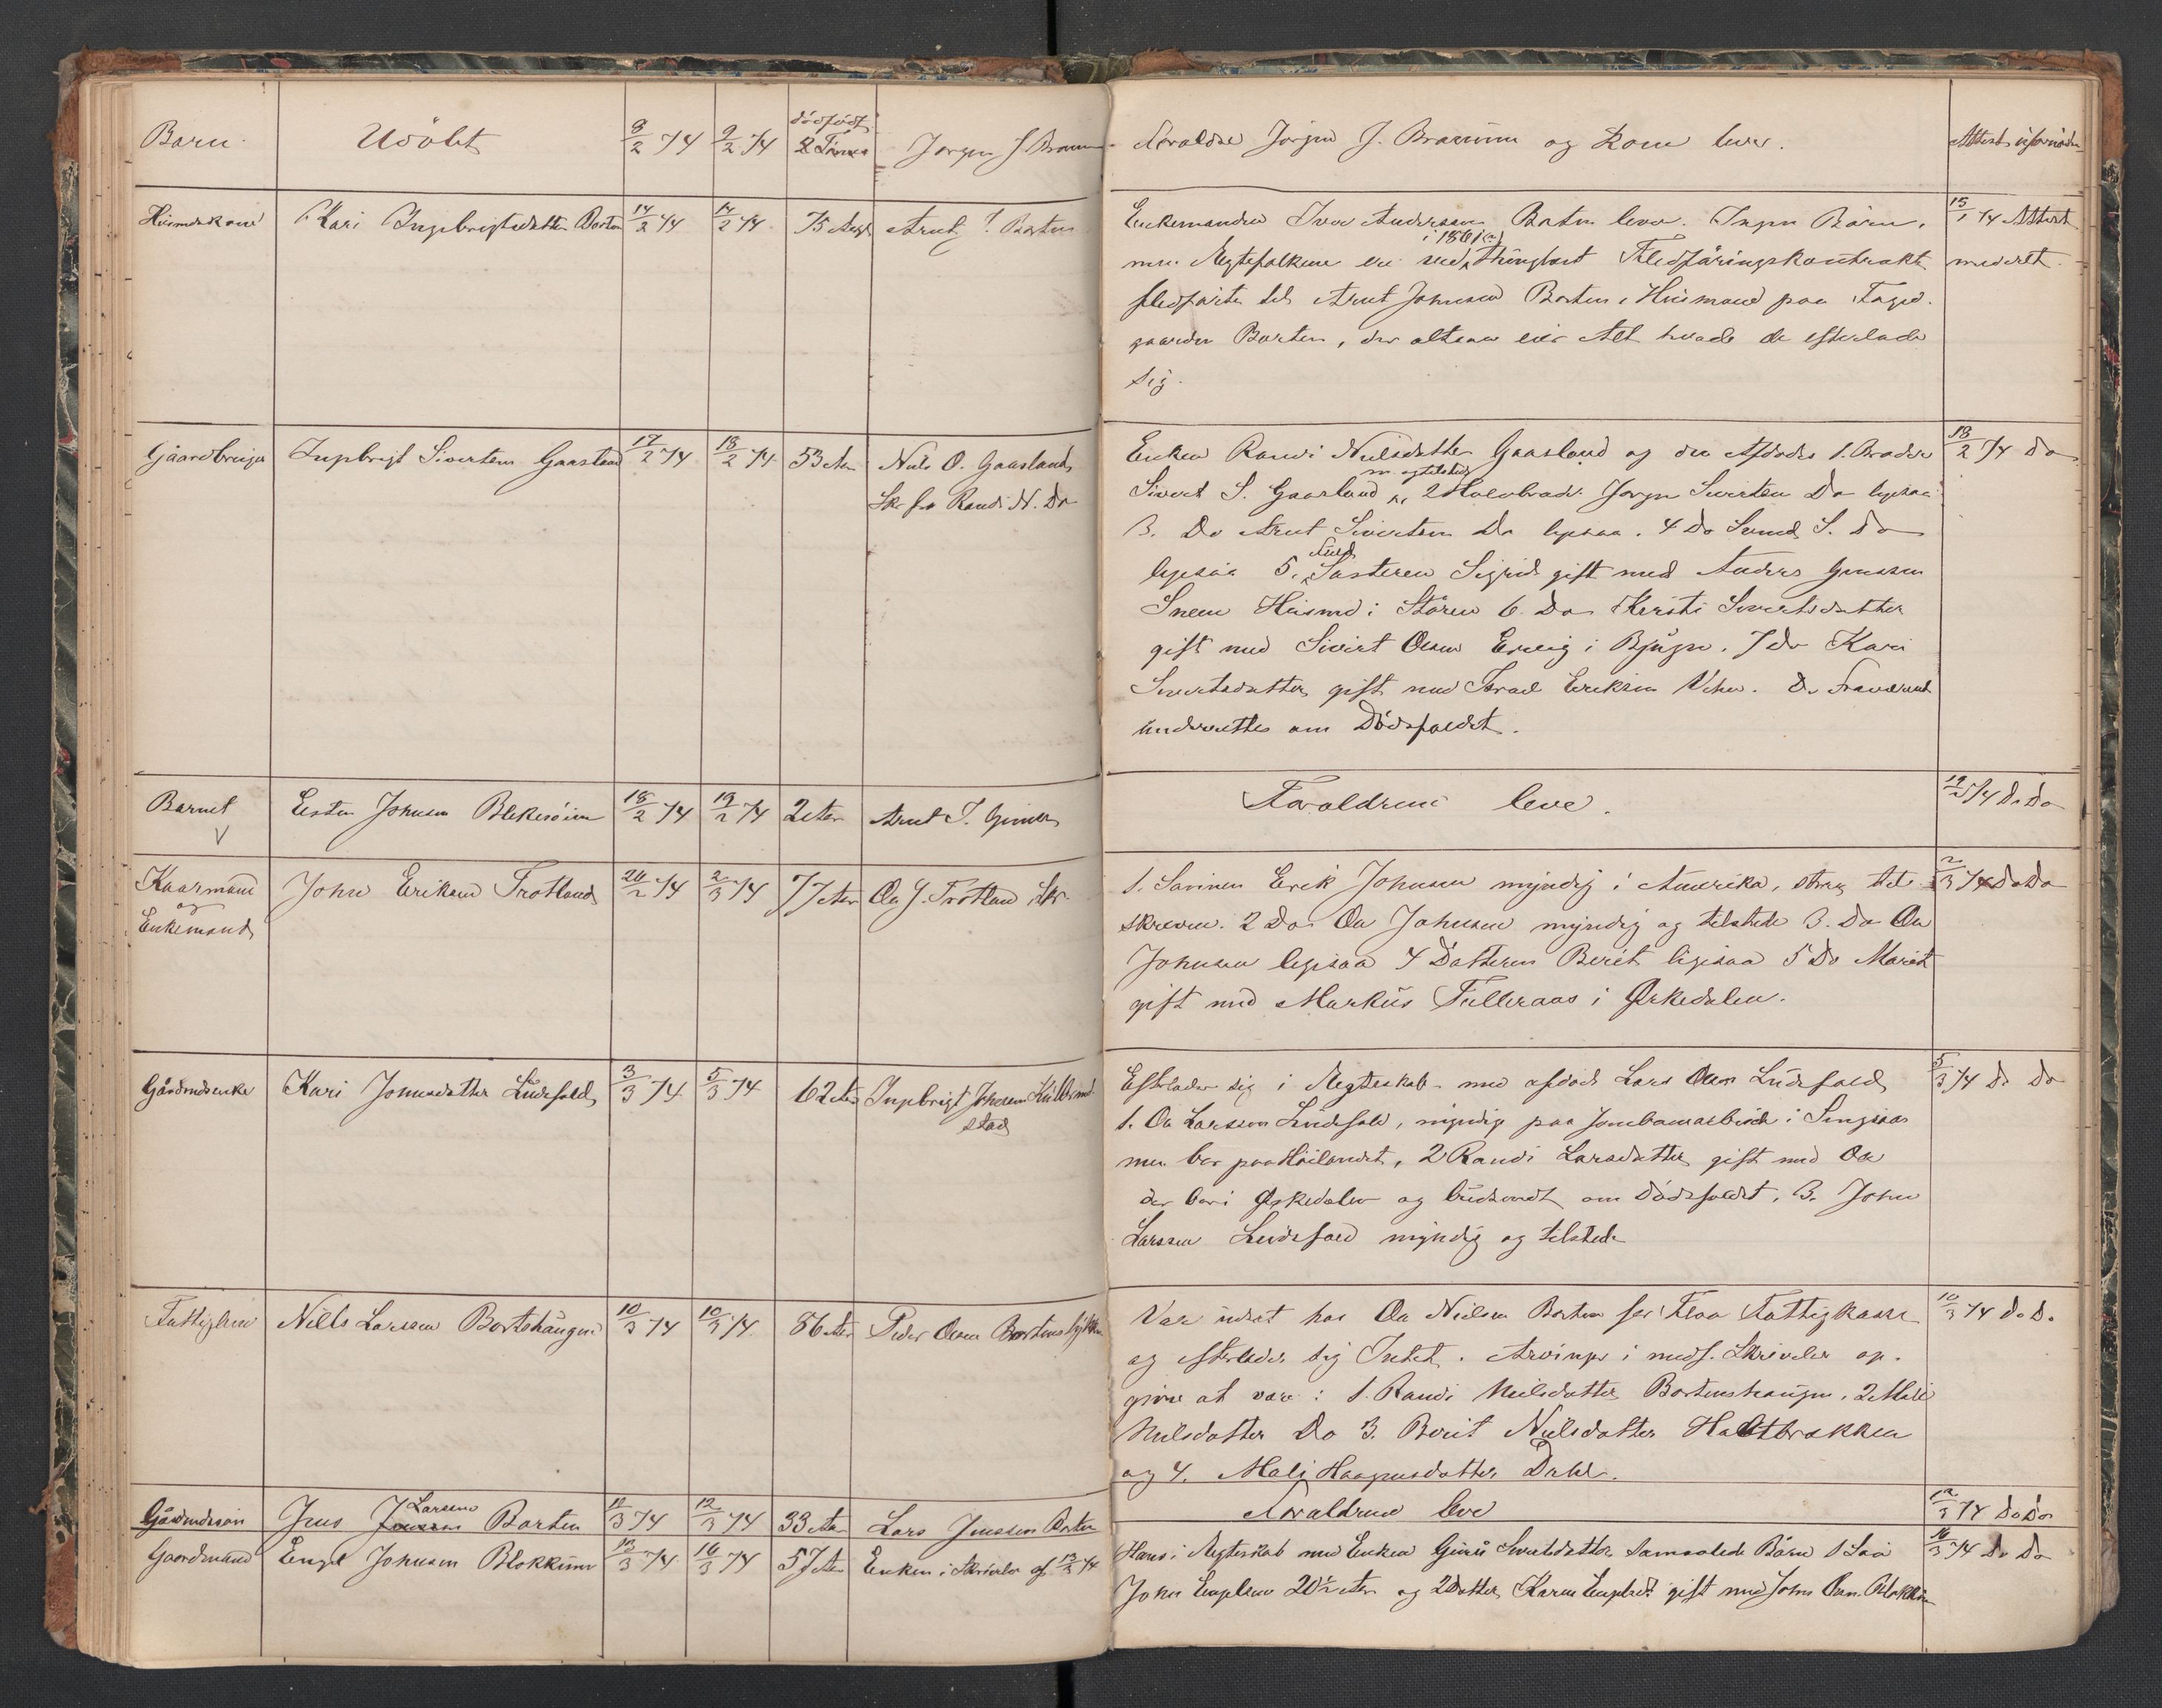 Barn. Udöbt 8/2 74 9/2 74 dödfödt Jørgen J. Braa
Forældre Jørgen J. og Kone lever. Attest
Huusmdskone Kari Ingebrigtsdatter Borten 14/2 74 14/2 74 75 Aar Arnt J. Borten
Enkemanden Iver Andersen Borten lever. Ingen Børn. 15/1 74 Attest
men Ægtefolkene ere ved i 1861 thinglæst Fledføringskontrakt meddelt.
fledførte til Arnt Johnsen Borten, Huusmand paa
gaarden Borten, der altsaa eier Alt hvad de efterlade
sig.
Gaardbruger Ingebrigt Sivertsen Gaasland 17/2 74 18/2 74 53 Aar Nils O. Gaasland
Skr. fra Randi N. Do
Enken Randi Nilsdatter Gaasland og den Afdødes 1. Broder 18/2 74 Do
Sivert S. Gaasland m. og tilstede, 2 Halvbroder Jørgen Sivertsen Do ligesaa
3. Do Arnt Sivertsen Do ligesaa. 4 Do Svend S. Do
ligesaa 5. Fuld Søsteren Sigrid gift med Anders Jensen
Sneen Husmd i Støren 6. Do Kirsti Sivertsdatter
gift med Sivert Olsen Ervig i Bjugn. 7 do Kari
Sivertsdatter gift med Israel Eriksen. De Fraværende
underrettes om Dödsfaldet.
Barnet Esten Johnsen Blekesöien 18/2 74 19/2 74 2 Aar Arnt J.
Forældrene leve. 19/2 74 Do Do
Kaarmand og Enkemand John Eriksen Trotland 20/2 74 2/3 74 77 Aar Ole J. Trotland Skr.
1. Sønnen Erik Johnsen myndig i Amerika, strax til- 2/3 74 Do Do
skreven. 2 Do Ole Johnsen myndig og tilstede 3. Do Ole
Johnsen ligesaa 4 Datteren Berit ligesaa 5 Do Marit
gift med Markus Fulleraas i Ørkedalen.
Gårdmdsenke Kari Jonsdatter Ludsfald 3/3 74 5/3 74 62 Aar Ingebrigt Johnsen
stad
Efterlader sig i Ægteskab med afdøde Lars Olsen Ludsfald 5/3 74 Do Do
1. Ole Larssen Ludsfald, myndig paa i Singsaas
men bor paa Høilandet, 2 Randi Larsdatter gift med Ole
der bor i Ørkedalen og budsendt om Dødsfaldet. 3. John
Larssen Ludsfald myndig og tilstede
Fattiglem Nils Larssen Bortshaugen 10/3 74 10/3 74 86 Aar Peder Olsen
Var indsat hos Ole Nielsen Borten for Flaa Fattigkasse 10/3 74 Do Do
og efterlader sig Intet. Arvinger i medf. Skrivelse op-
gives at være: 1. Randi Nilsdatter Bortenshaugen. 2 Mali
Nilsdatter Do 3. Berit Nilsdatter Haltbrækken
og 4. Mali Haagensdatter Dahl.
Gårdmdssøn Jens Larssen Borten 11/3 74 12/3 74 33 Aar Lars Jenssen Borten
Forældrene leve 12/3 74 Do Do
Gaardmand Engel Johnsen Blokkum 13/3 74 16/3 74 57 Aar Enken i Skrivelse af 13/3 74
Hans i Ægteskab med Enken Guru Sivertsdatter samavlede Børn 1 Søn 16/3 74 Do Do
John Engelsen 20½ Aar og 2 Datter Karen Engelsd. gift med John Olsen Blokkum